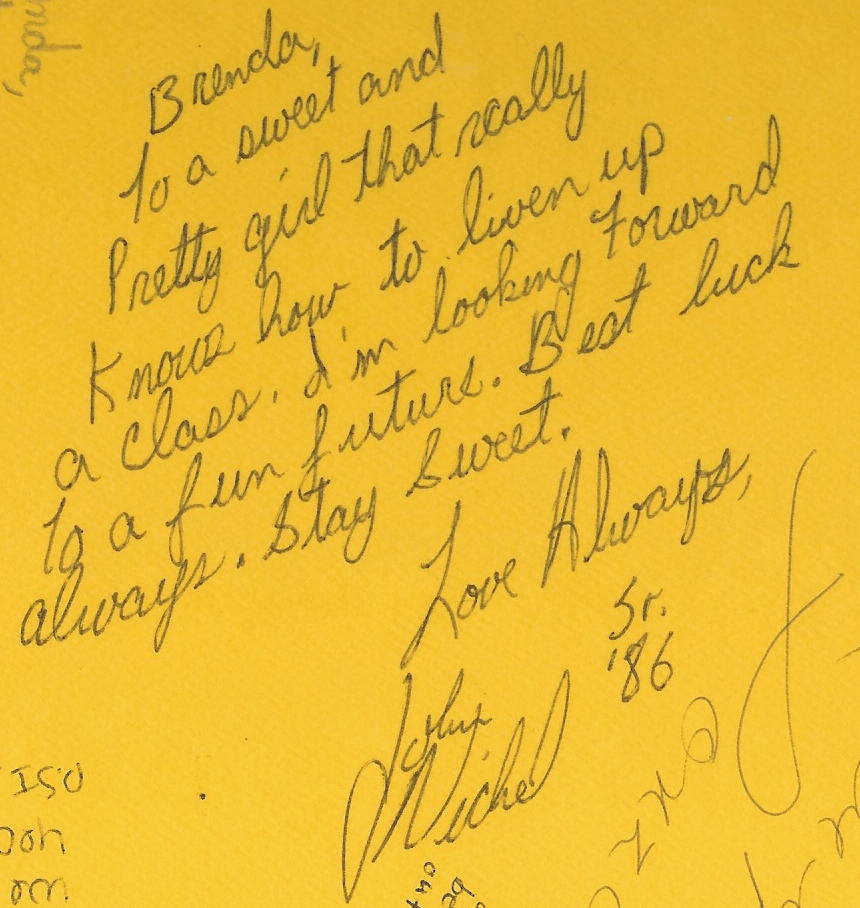 Brenda,
To a sweet and
Pretty girl that really
Knows how to liven up
a class. I'm looking Forward
to a fun future. Best luck
always. Stay Sweet.
Love Always,
Sr.
'86
John
Michel
nda,